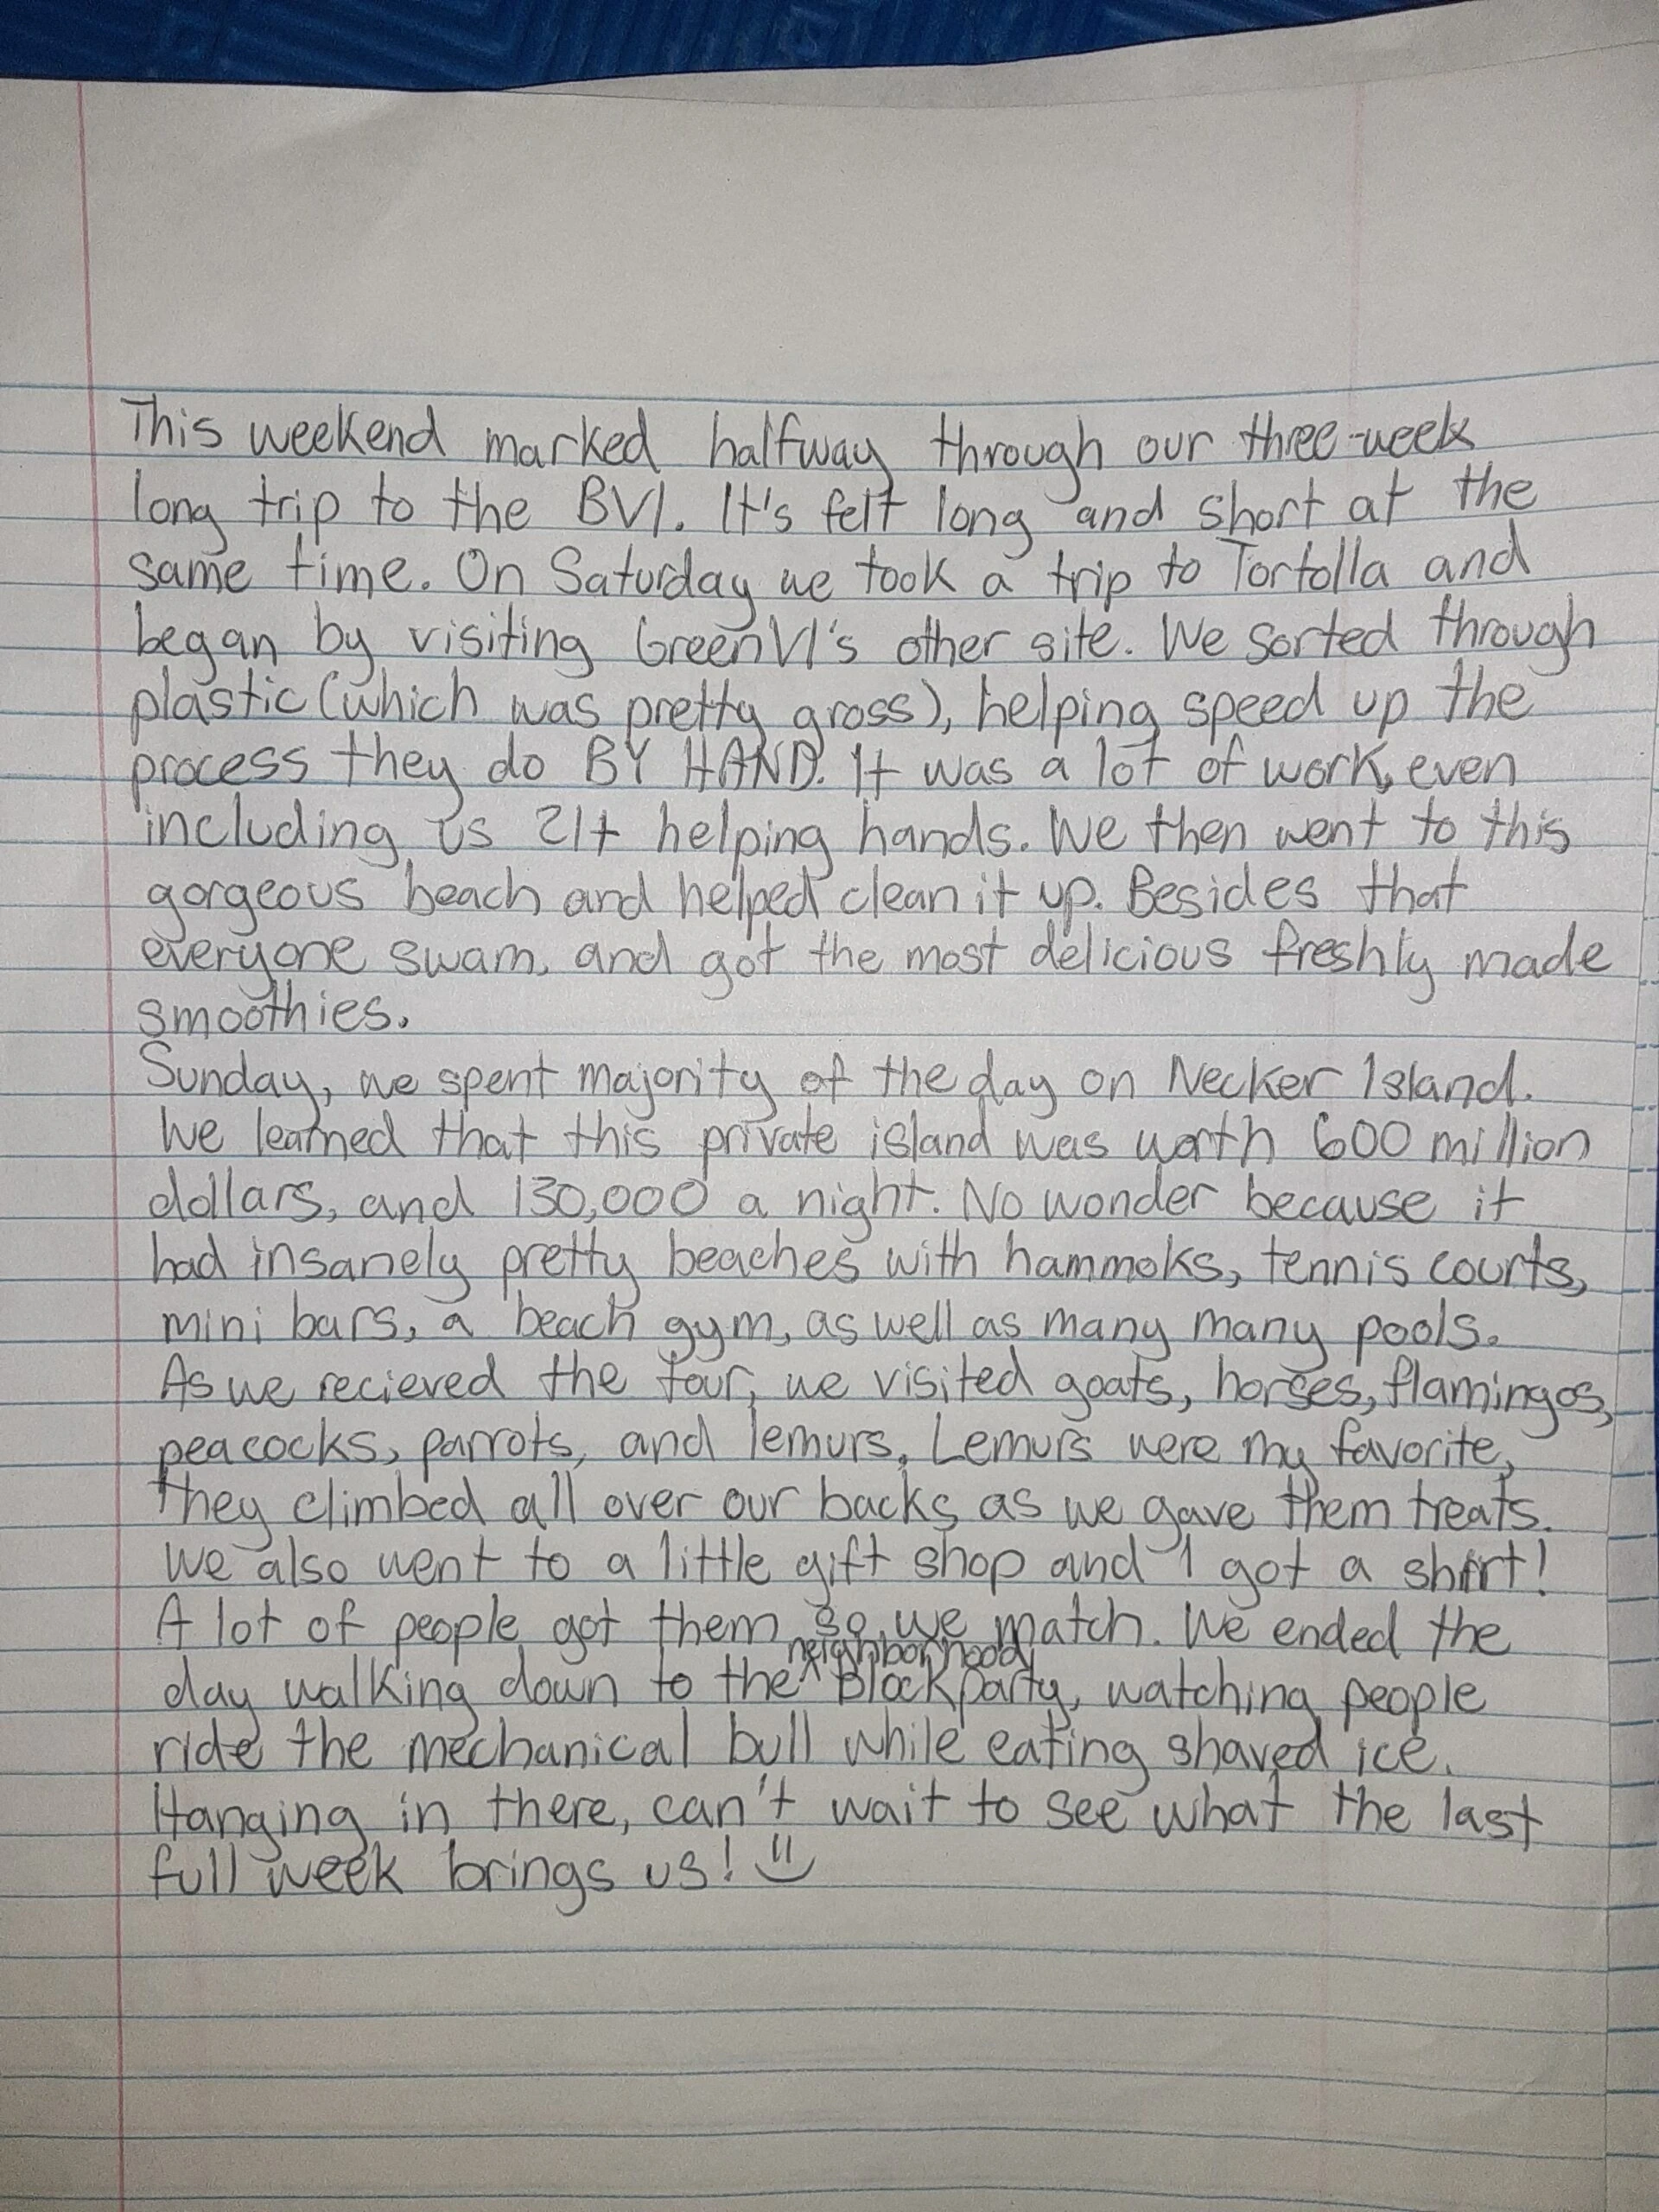 This weekend marked halfway through our three-week
long trip to the BVI. It's felt long and short at the
same time. On Saturday we took a trip to Tortolla and
began by visiting GreenVI's other site. We sorted through
plastic (which was pretty gross), helping speed up the
process they do BY HAND. It was a lot of work, even
including us 21+ helping hands. We then went to this
gorgeous beach and helped clean it up. Besides that
everyone swam, and got the most delicious freshly made
smoothies.
Sunday, we spent majority of the day on Necker Island.
We learned that this private island was worth 600 million
dollars, and 130,000 a night. No wonder because it
had insanely pretty beaches with hammoks, tennis courts,
mini bars, a beach gym, as well as many many pools.
As we recieved the tour, we visited goats, horses, flamingos,
peacocks, parrots, and lemurs. Lemurs were my favorite,
they climbed all over our backs as we gave them treats.
We also went to a little gift shop and I got a shirt!
A lot of people got them so we match. We ended the
day walking down to the neighborhood Block party, watching people
ride the mechanical bull while eating shaved ice.
Hanging in there, can't wait to see what the last
full week brings us! =)